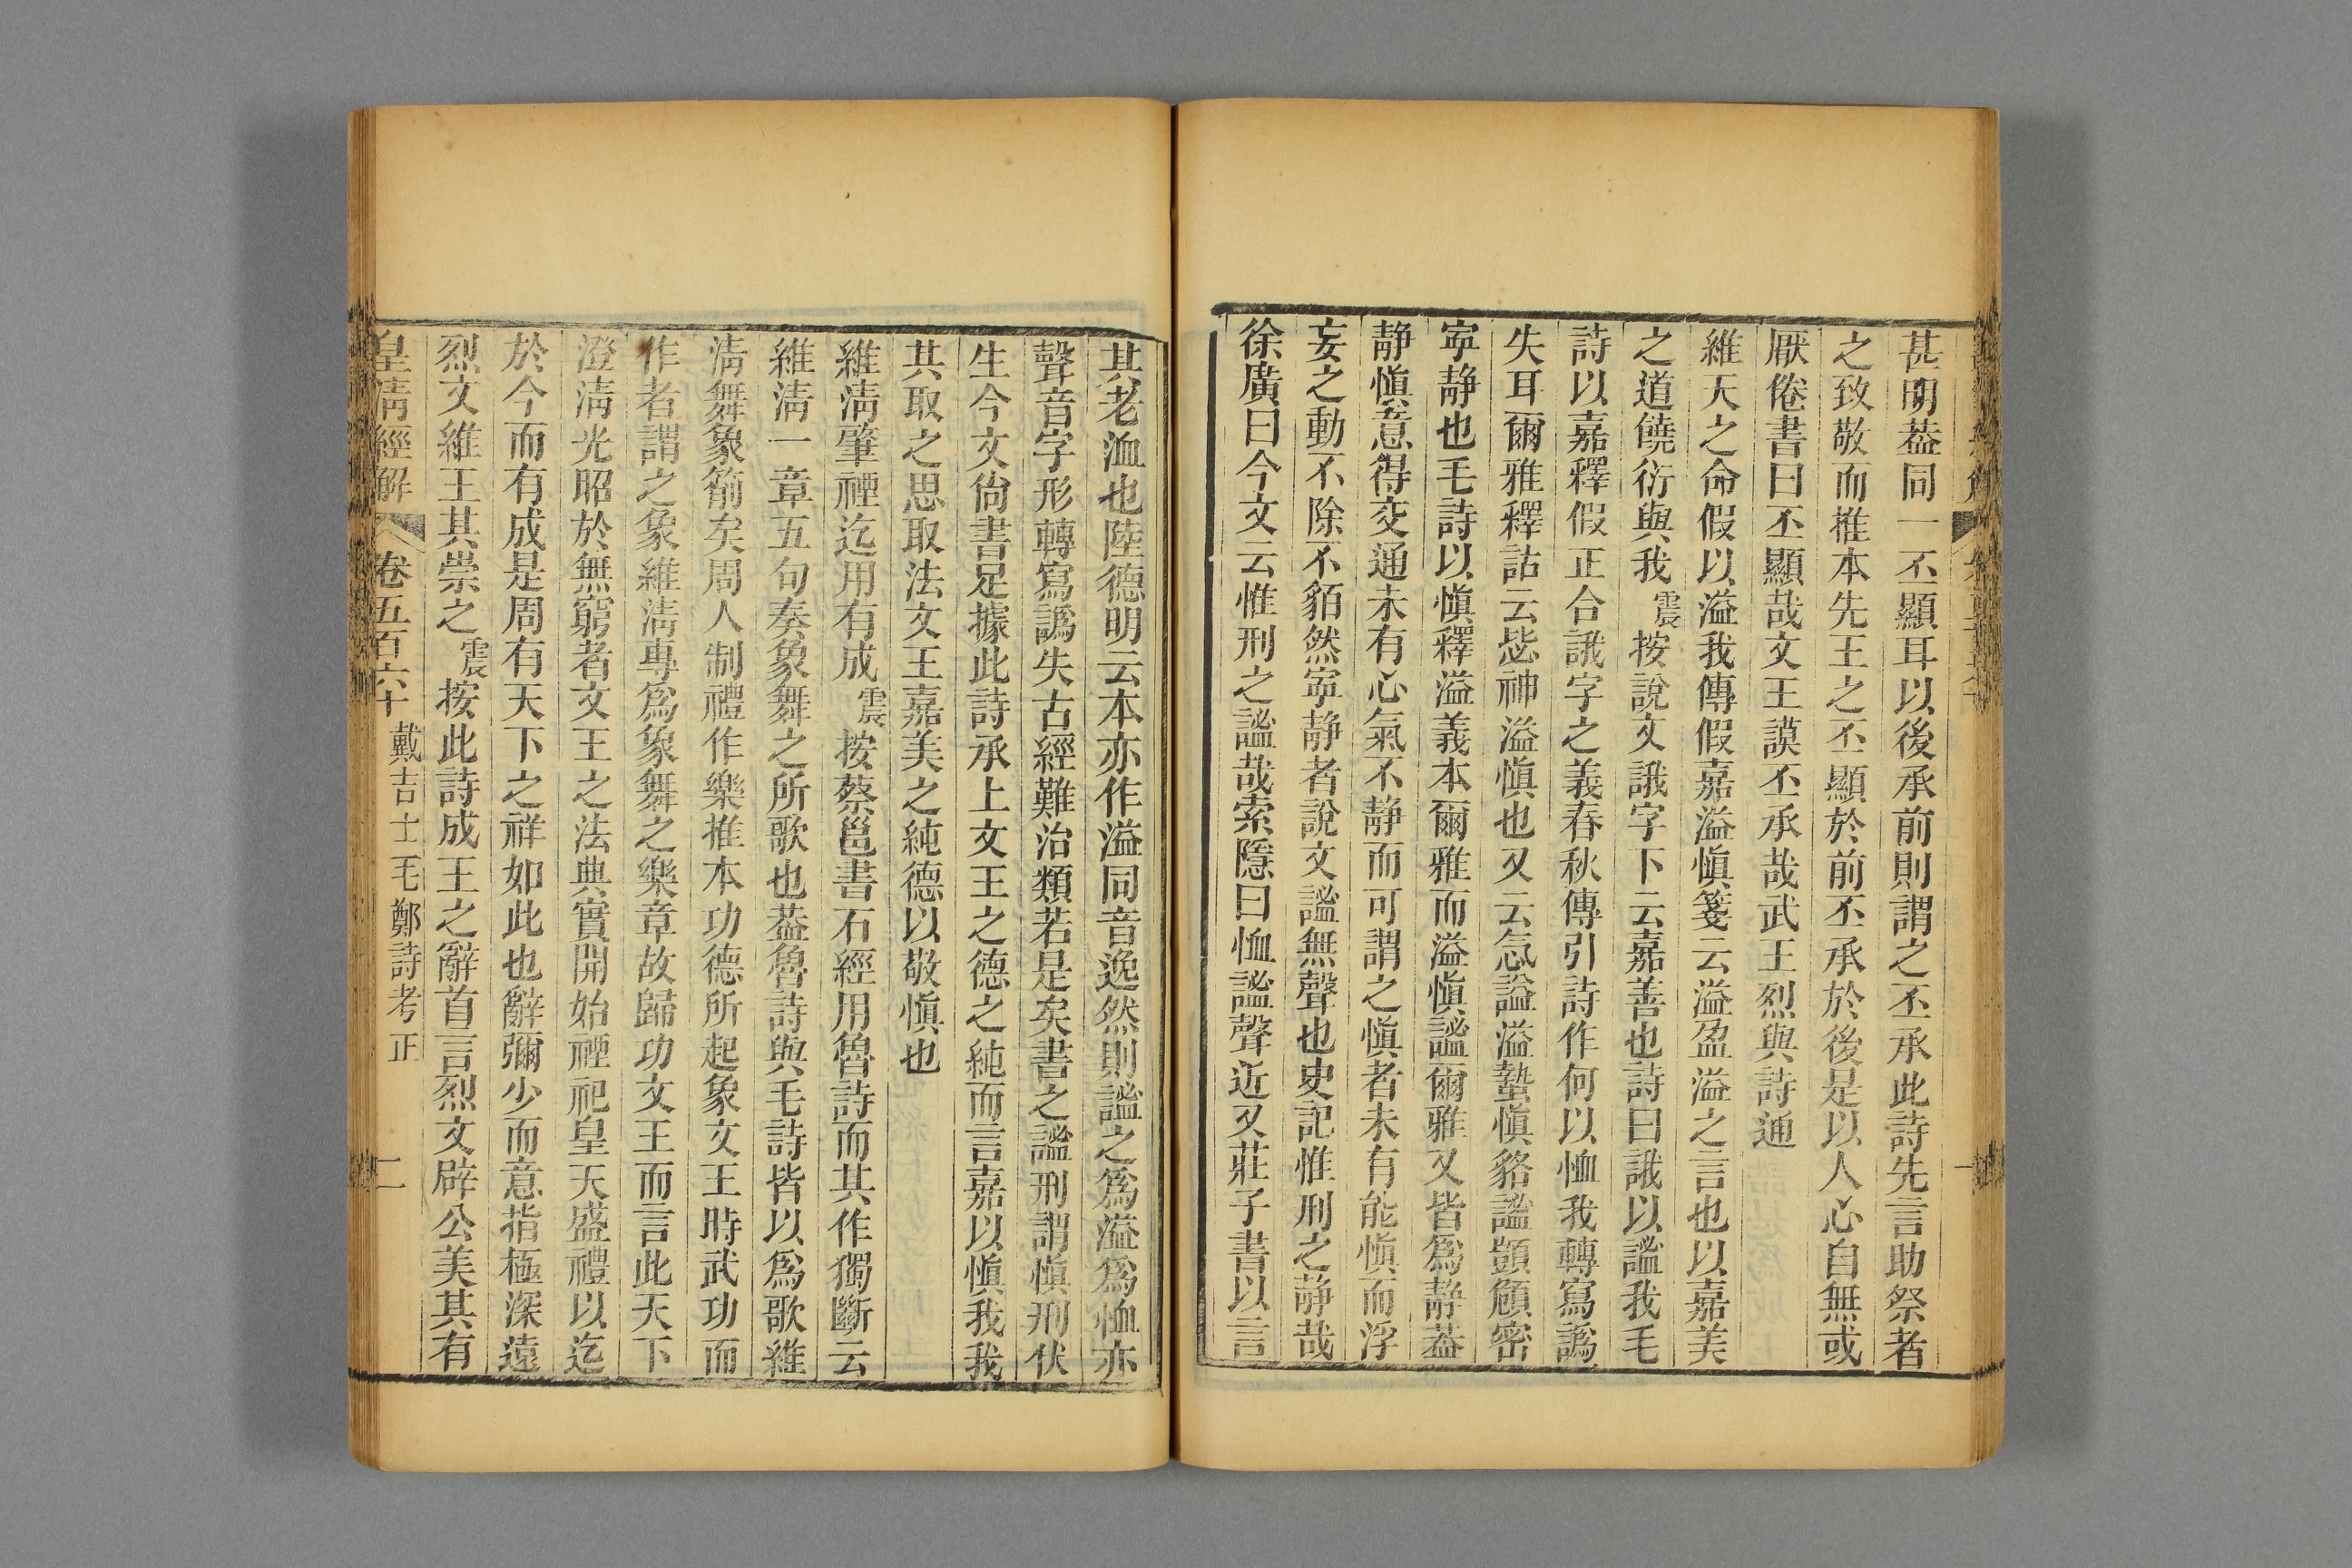 甚明葢同一丕顯耳以後承前則謂之丕承此詩先言助祭者
之致敬而推本先王之丕顯於前丕承於後是以人心自無或
厭倦書曰丕顯哉文王謨丕承哉武王烈與詩通
維天之命假以溢我傳假嘉溢愼箋云溢盈溢之言也以嘉美
之道饒衍與我震按說文誐字下云嘉善也詩曰誐以謐我毛
詩以嘉釋假正合誐字之義春秋傳引詩作何以恤我轉寫譌
失耳爾雅釋詁云毖神溢愼也又云忥謚溢蟄愼貉謐顗頠密
寧靜也毛詩以愼釋溢義本爾雅而溢愼謐爾雅又皆爲靜葢
靜愼意得交通未有心氣不靜而可謂之愼者未有能愼而浮
妄之動不除不貊然寧靜者說文謐無聲也史記惟刑之靜哉
徐廣曰今文云惟刑之謐哉索隱曰恤謐聲近又莊子書以言
其老洫也陸德明云本亦作溢同音逸然則謐之爲溢爲恤亦
聲音字形轉寫譌失古經難治類若是矣書之謐刑謂愼刑伏
生今文尙書足據此詩承上文王之德之純而言嘉以愼我我
其取之思取法文王嘉美之純德以敬愼也
維淸肇禋迄用有成震按蔡邕書石經用魯詩而其作獨斷云
維淸一章五句奏象舞之所歌也葢魯詩與毛詩皆以爲歌維
淸舞象箾矣周人制禮作樂推本功德所起象文王時武功而
作者謂之象維淸專爲象舞之樂章故歸功文王而言此天下
澄淸光昭於無窮者文王之法典實開始禋祀皇天盛禮以迄
於今而有成是周有天下之祥如此也辭彌少而意指極深遠
烈文維王其崇之震按此詩成王之辭首言烈文辟公美其有
皇淸經解 卷五百六十 戴吉士毛鄭詩考正 二